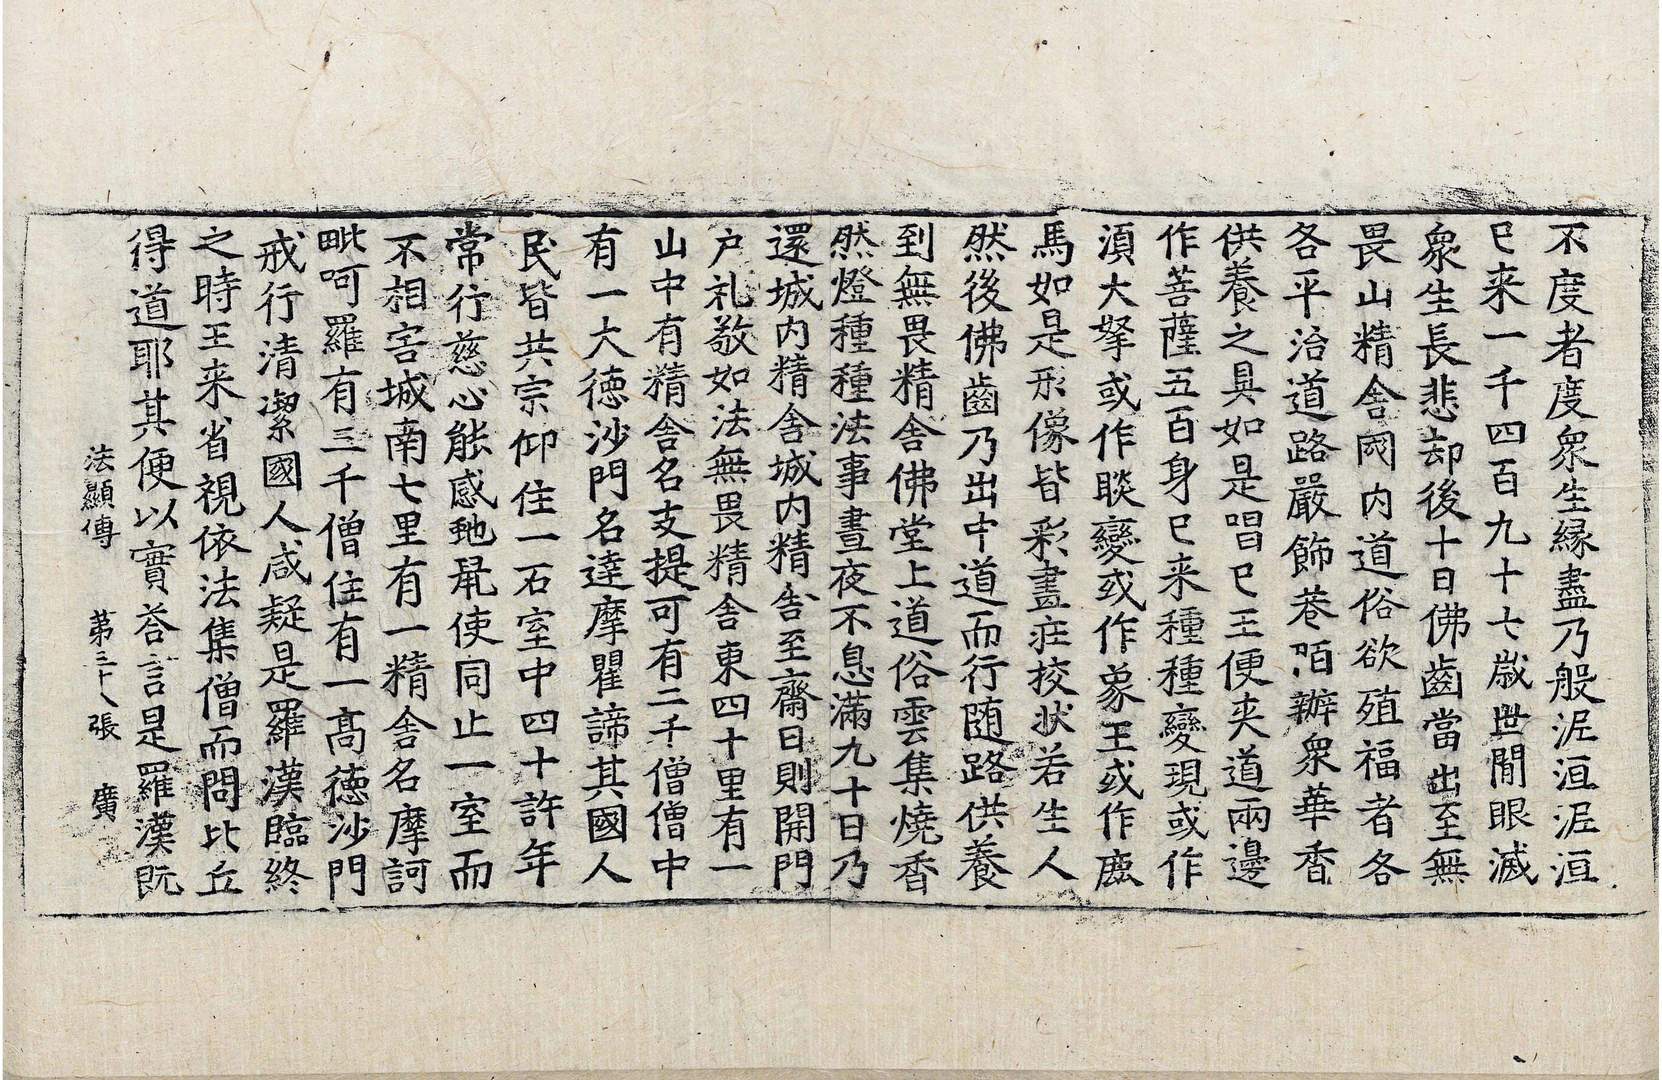 不度者度衆生縁盡乃般泥洹泥洹
已来一千四百九十七歲世間眼滅
衆生長悲却後十日佛齒當出至無
畏山精舎國内道俗欲殖福者各
各平治道路嚴飾巷陌辦衆華香
供養之具如是唱已王便夾道兩邊
作菩薩五百身已来種種變現或作
湏大拏或作睒變或作象王或作鹿
馬如是形像皆彩畫莊挍状若生人
然後佛齒乃出中道而行随路供養
到無畏精舎佛堂上道俗雲集燒香
然燈種種法事晝夜不息滿九十日乃
還城内精舎城内精舎至齋日則開門
户礼敬如法無畏精舎東四十里有一
山中有精舎名支提可有二千僧僧中
有一大徳沙門名達摩瞿諦其國人
民皆共宗仰住一石室中四十許年
常行慈心能感虵䑕使同止一室而
不相害城南七里有一精舎名摩訶
毗呵羅有三千僧住有一髙徳沙門
戒行清潔國人咸疑是羅漢臨終
之時王来省視依法集僧而問比丘
得道耶其便以實荅言是羅漢既
法顯傳 第三十八張 廣